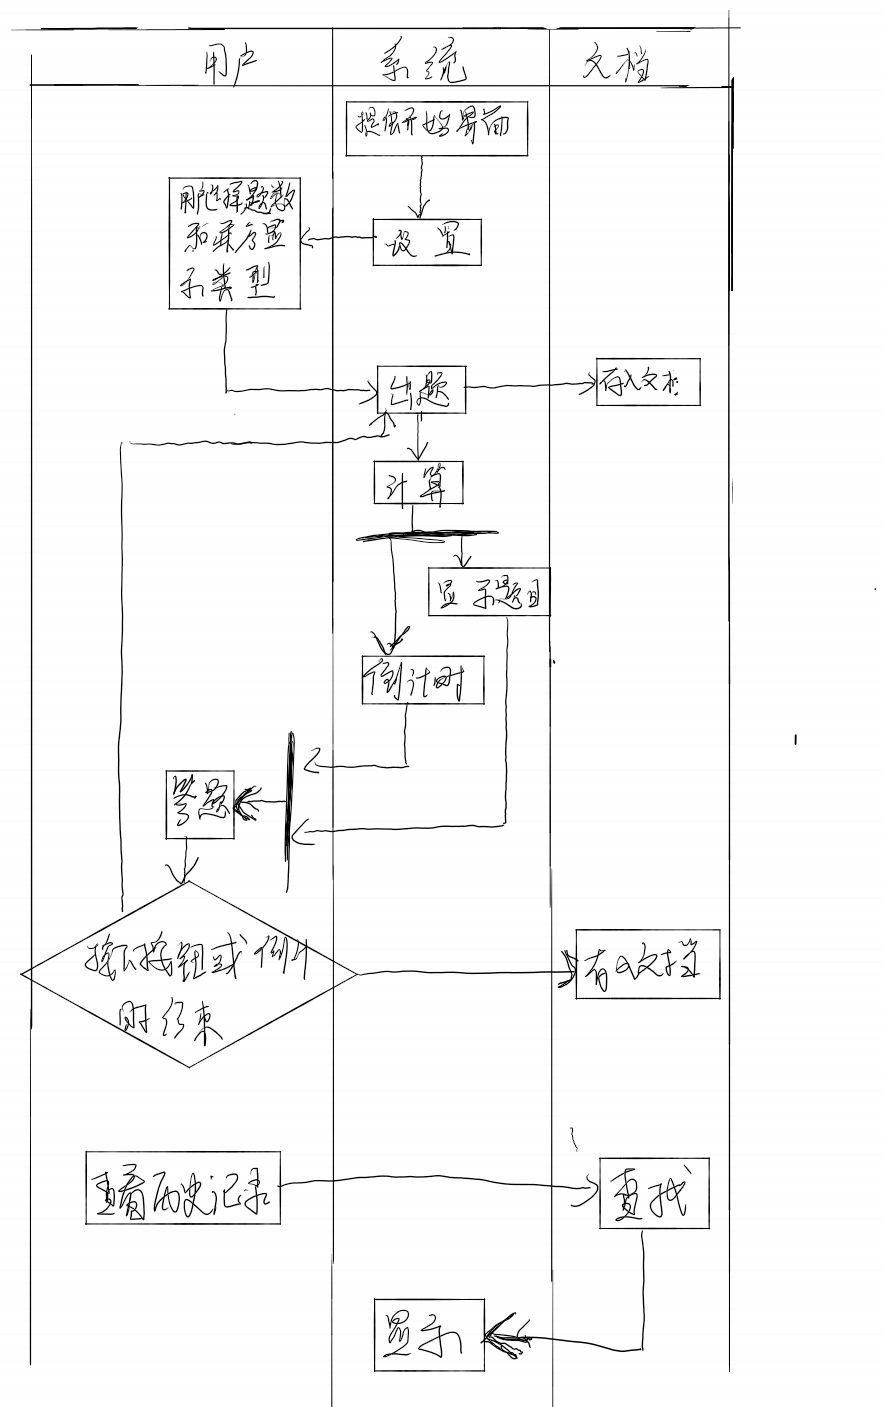 用户
系统
文档
提供开始界面
设置
用户选择题数
和乘方显
示类型
出题
存入文档
计算
显示题目
倒计时
答题
按下按钮或倒计
时结束
存入文档
查看历史记录
查找
显示